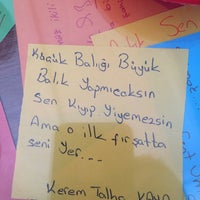 Küçük Balığı Büyük
Balık Yapmıcaksın
Sen Kıyıp Yiyemezsin
Ama o ilk fırsatta
seni yer...
Kerem Talha
Sen